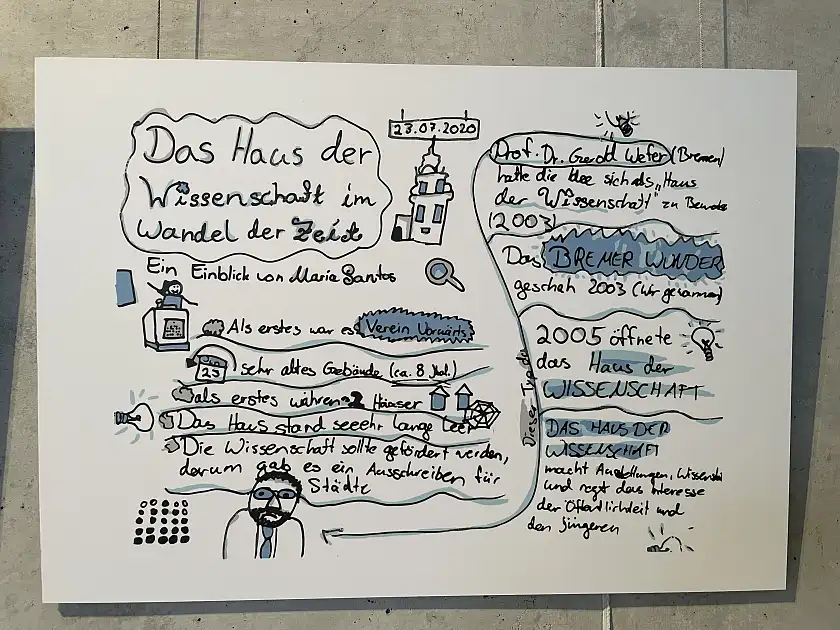 Das Haus der
Wissenschaft im
Wandel der Zeit
23.07.2020
Ein Einblick von Maria Santos
Als erstes war es Verein Vorwärts
23
sehr altes Gebäude (ca. 8 Jhd.)
als erstes wahren 2 Häuser
Das Haus stand seeehr lange leer
Die Wissenschaft sollte gefördert werden,
darum gab es ein Ausschreiben für
Städte
Prof. Dr. Gerold Wefer (Bremen)
hatte die Idee sich als "Haus
der Wissenschaft" zu
(2003)
Das BREMER WUNDER
geschah 2003 (Wir gewannen)
2005 öffnete
das Haus der
WISSENSCHAFT
DAS HAUS DER
WISSENSCHAFT
macht Austellungen,
und regt das Interesse
der Öffentlichkeit und
den jüngeren
Dieser